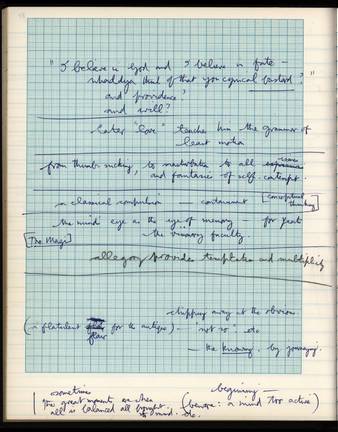 "I believe in God and I believe in fate –
whaddya think of that you cynical bastard?"
and providence?
and will?
Later 'love' teaches him the grammar of
least motion
from thumb-sucking, to masturbation to all
and fantasies of self-contempt.
a classical compulsion — containment [conceptual
thinking]
the mind's eye as the eye of memory — for
[The Magi] the visionary faculty
allegory provides template and multiplicity
chipping away at the obvious
(a flatulent for the antique) — 'not so' etc
flair
— the knowing. by
sometimes beginning —
the great moments are when (beware: a mind too active)
all is balanced all brought
to mind. etc.